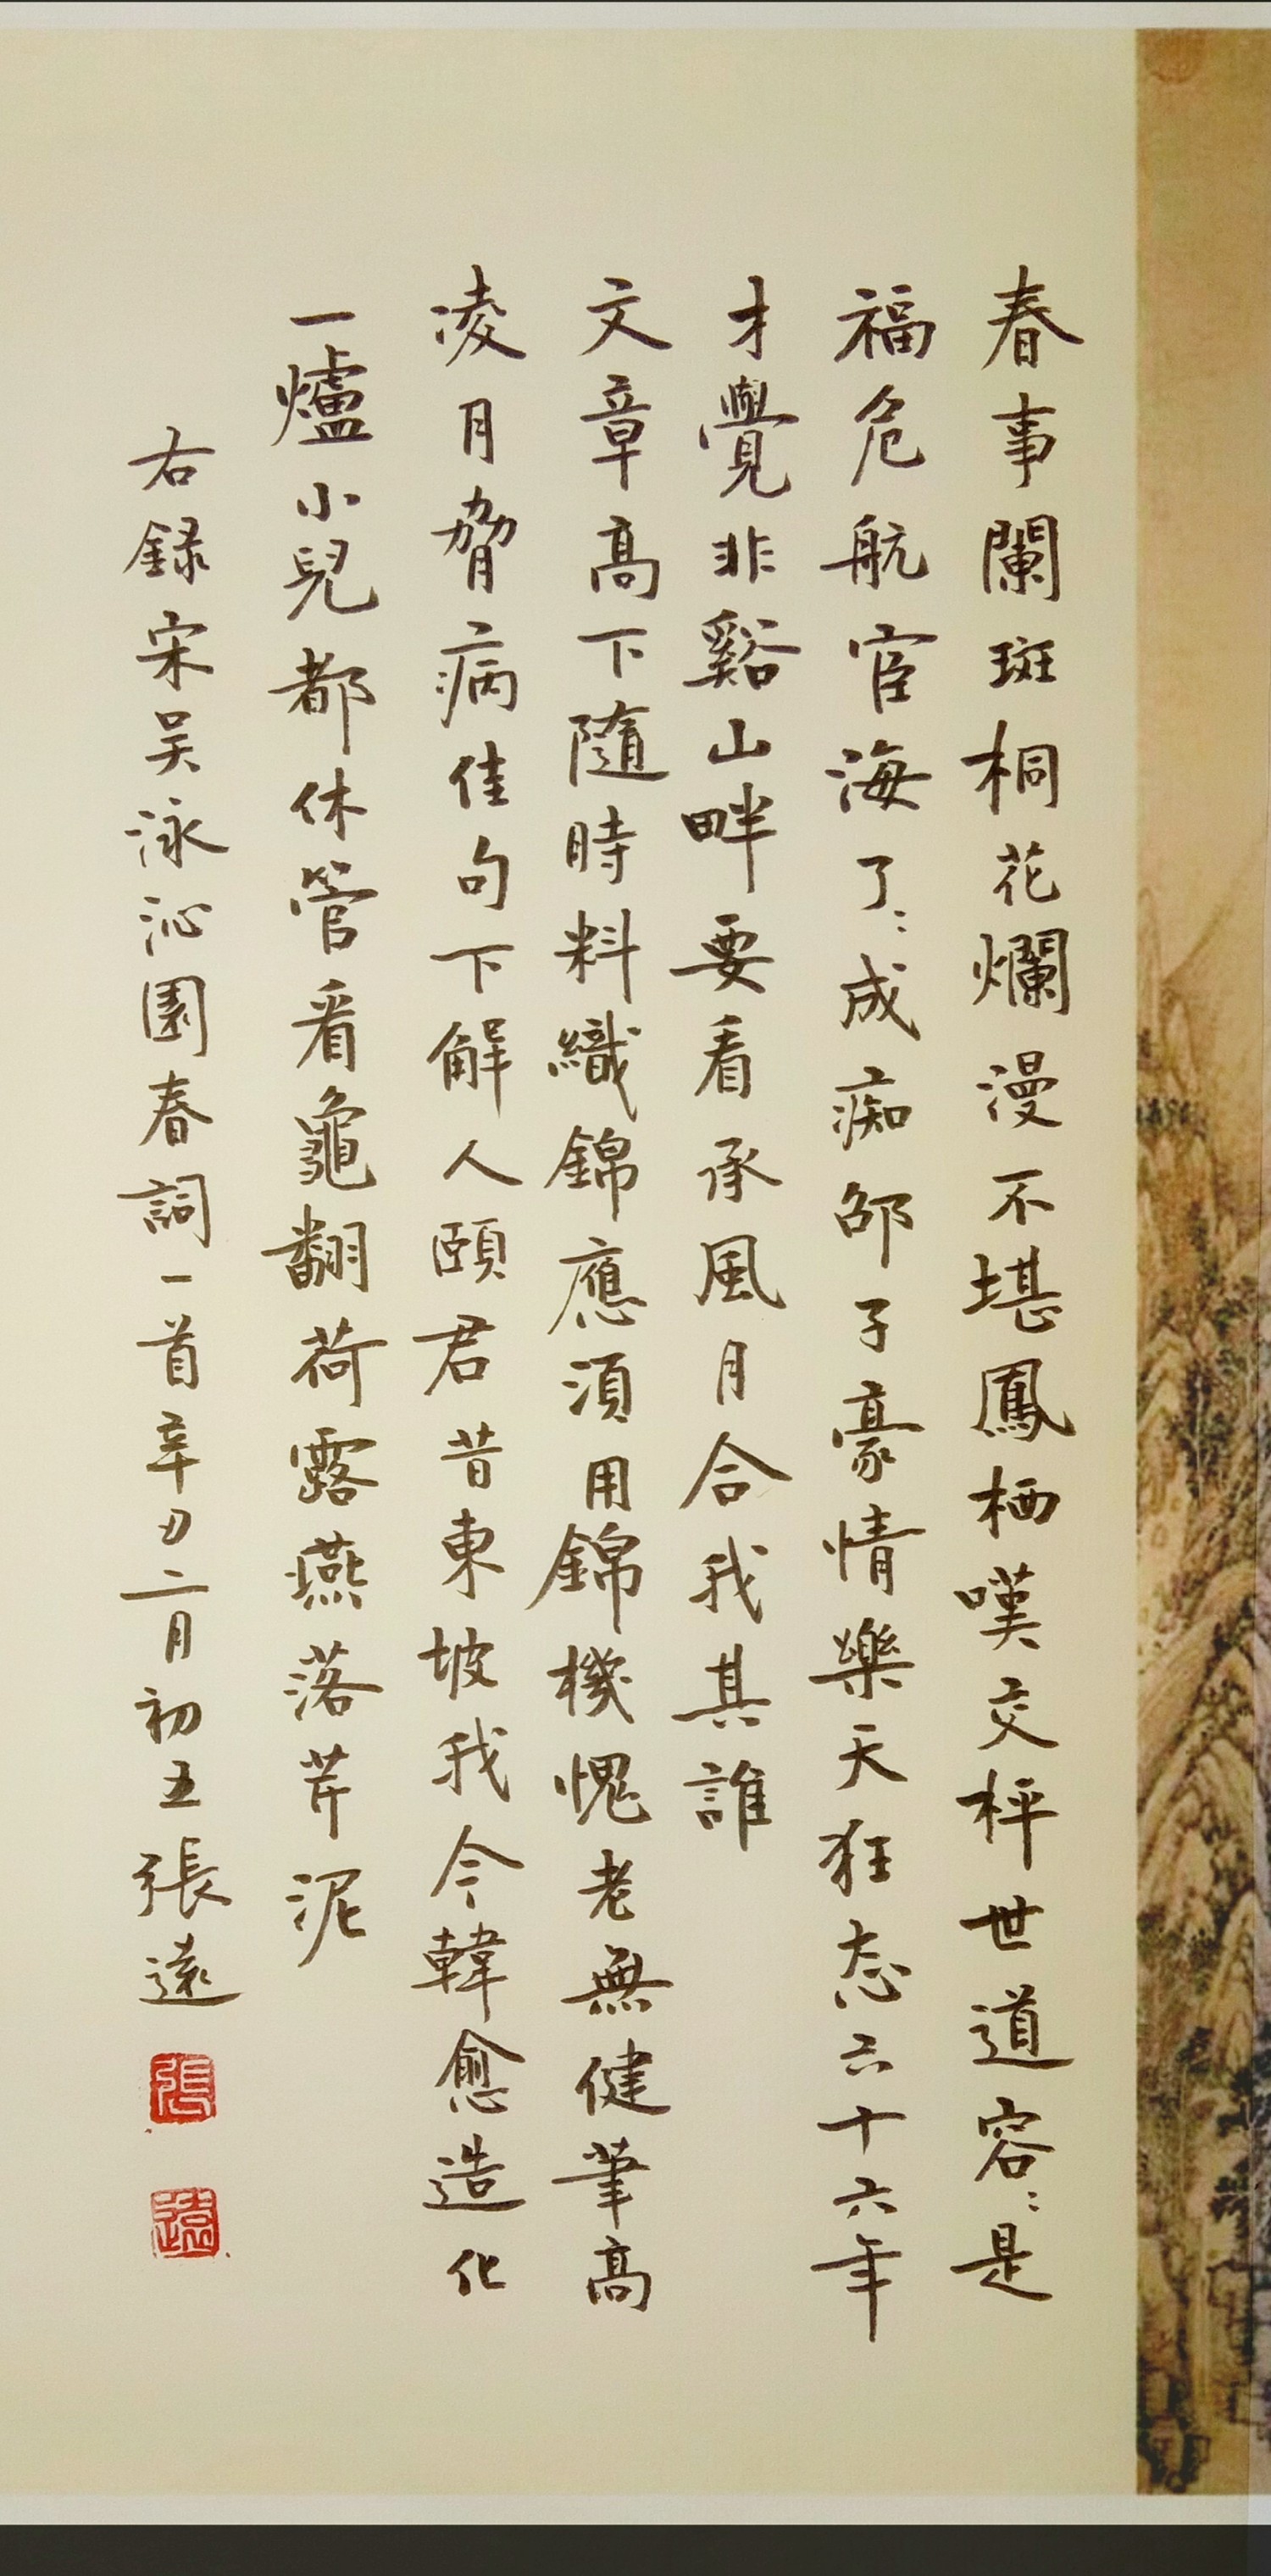 春事闌斑桐花爛漫不堪鳳栖嘆交枰世道容〻是
福危航宦海了〻成痴邵子豪情樂天狂态六十六年
才覺非谿山畔要看承風月合我其誰
文章高下隨時料織錦應須用錦機愧老無健筆高
凌月脅病佳句下解人頤君昔東坡我今韓愈造化
一爐小兒都休管看龜翻荷露燕落芹泥
右録宋吴泳沁園春詞一首辛丑二月初五張遠
張
遠